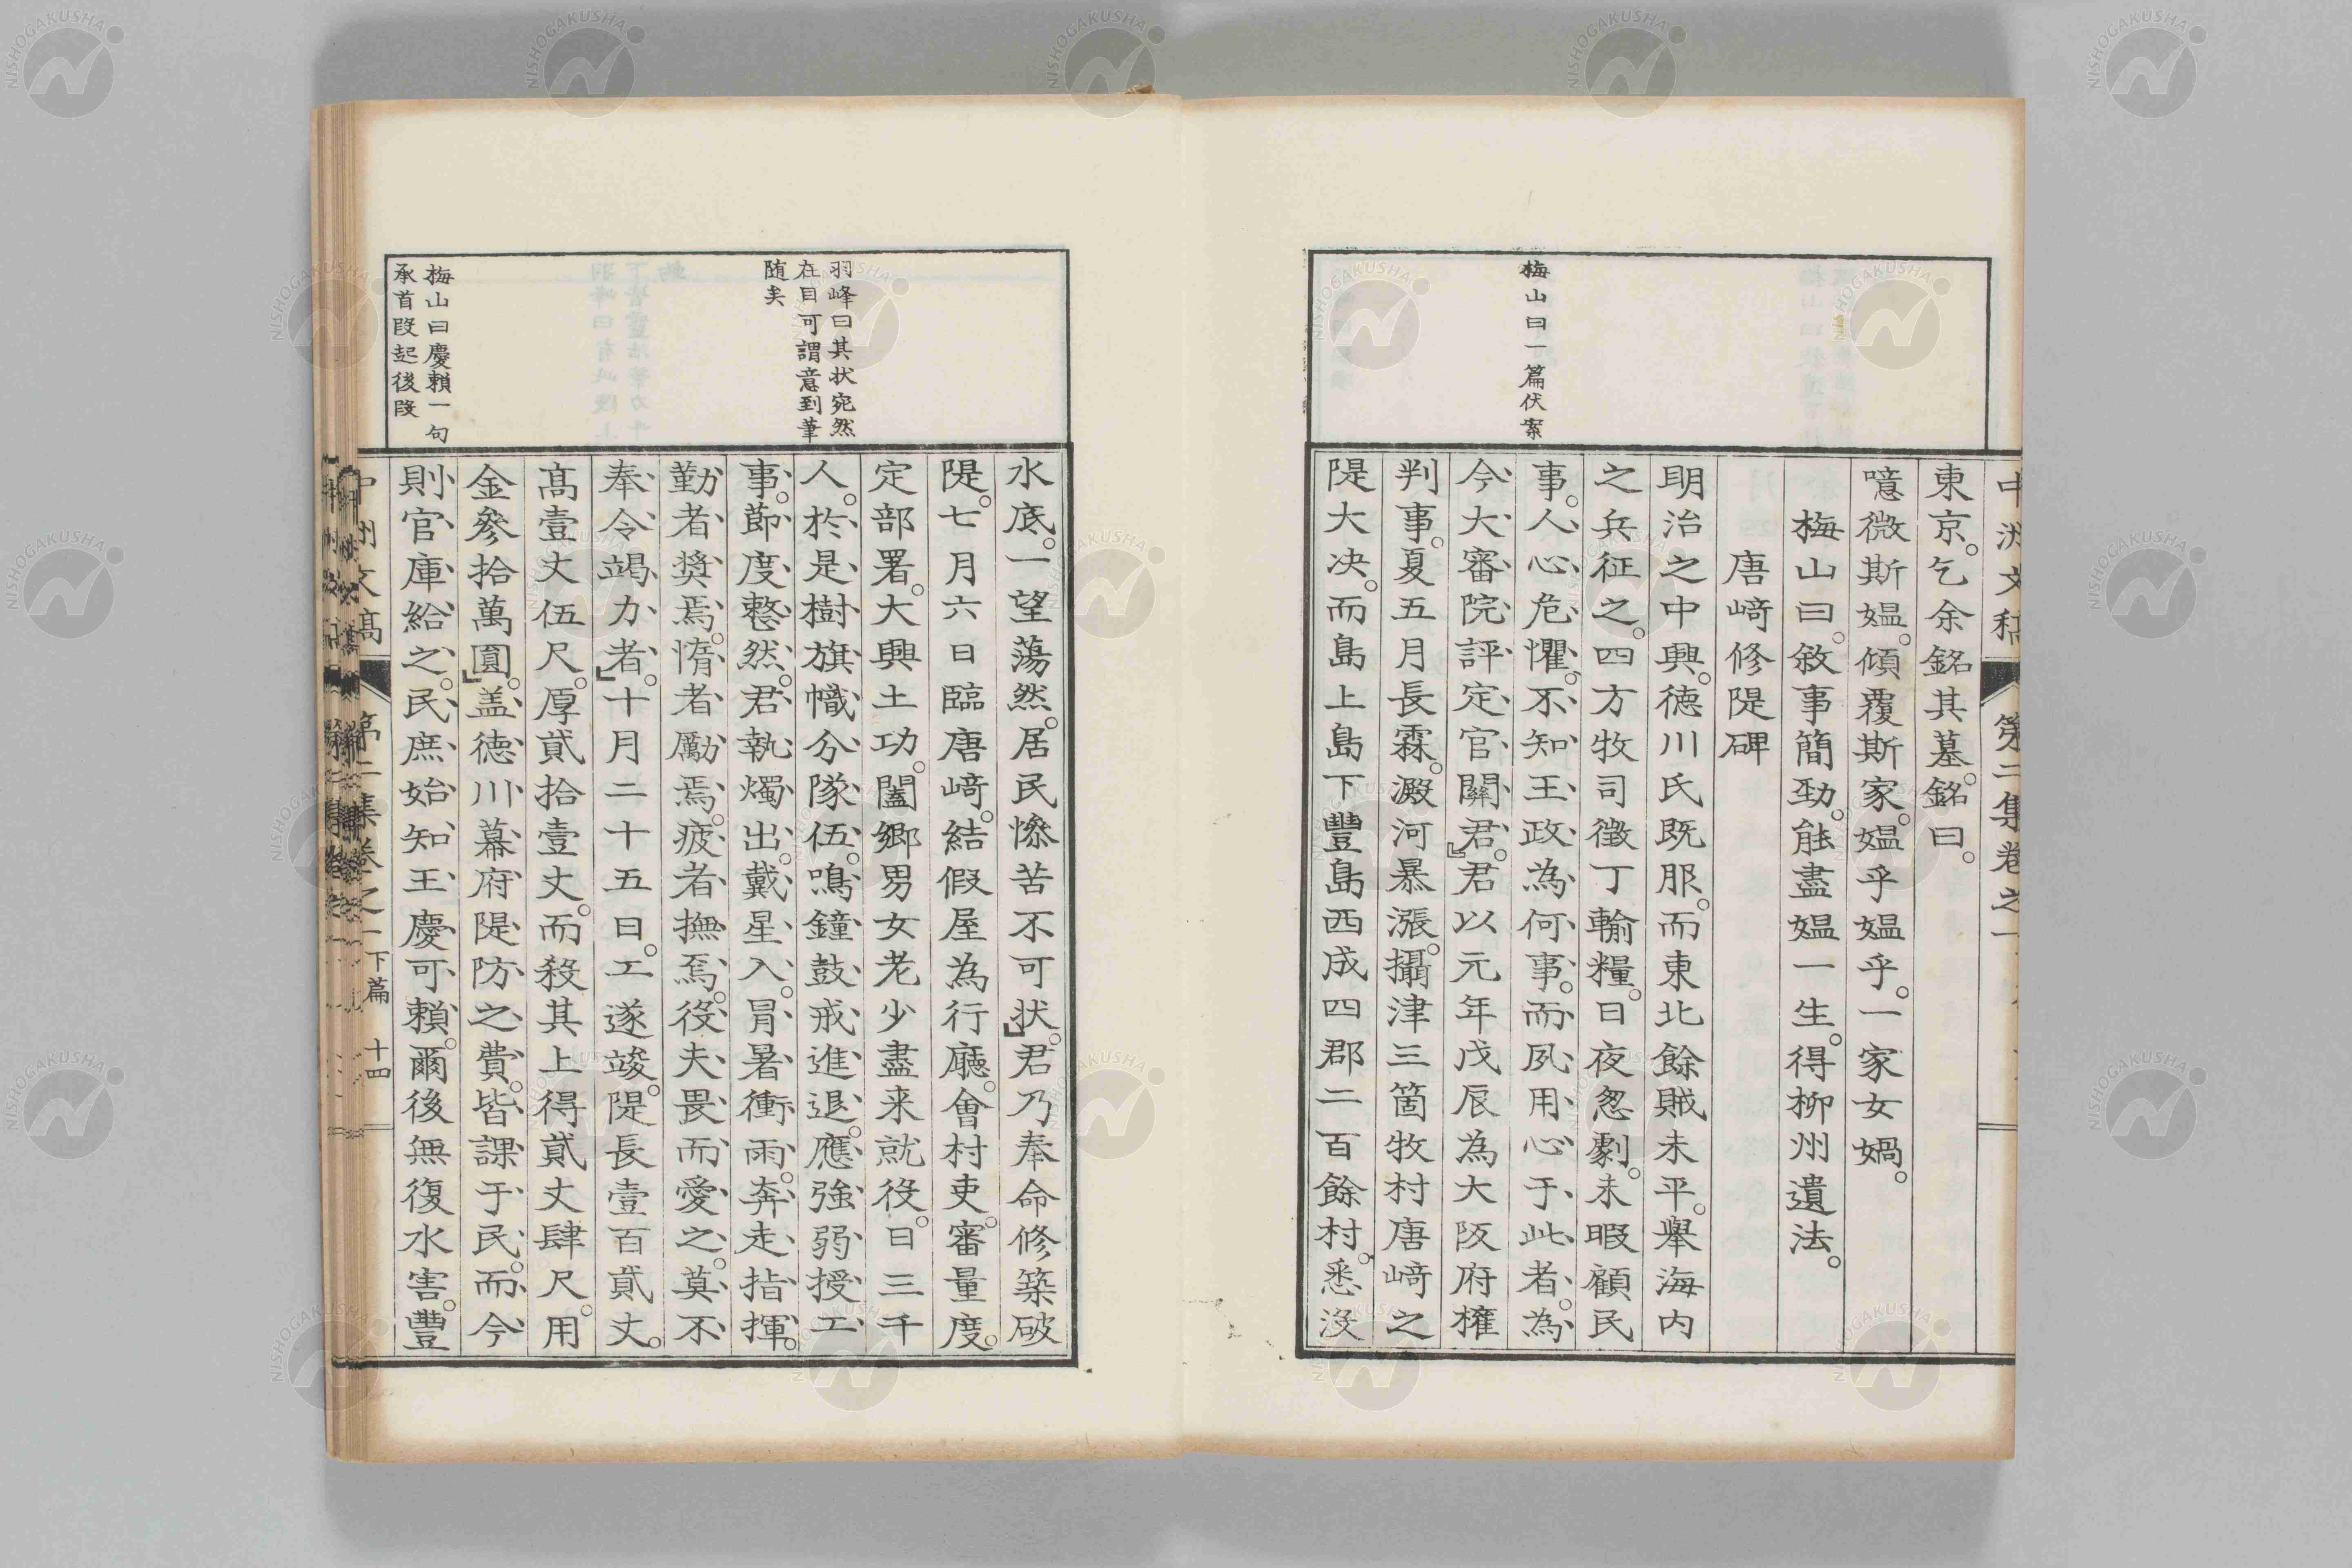 中洲文稿 第二集卷之一
東京。乞余銘其墓。銘曰。
噫微斯媪。傾覆斯家。媪乎媪乎。一家女媧。
梅山曰。敘事簡勁。能盡媪一生。得柳州遺法。
唐﨑修隄碑
明治之中興。德川氏既服。而東北餘賊未平。舉海内
之兵征之。四方牧司徵丁輸糧。日夜怱劇。未暇顧民
事。人心危懼。不知王政為何事。而夙用心于此者。為
今大審院評定官關君。君以元年戊辰為大阪府權
判事。夏五月長霖。澱河暴漲。攝津三箇牧村唐﨑之
隄大决。而島上島下豐島西成四郡二百餘村。悉沒
梅山曰一篇伏案
水底。一望蕩然。居民慘苦不可状。君乃奉命修築破
隄。七月六日臨唐﨑。結假屋為行廳。會村吏。審量度。
定部署。大興土功。闔鄉男女老少盡来就役。日三千
人。於是樹旗幟分隊伍。鳴鐘鼓戒進退。應強弱授工
事。節度整然。君執燭出。戴星入。冒暑衝雨。奔走指揮。
勤者奬焉。惰者勵焉。疲者撫焉。役夫畏而愛之。莫不
奉令竭力者。十月二十五日。工遂竣。隄長壹百貳丈。
髙壹丈伍尺。厚貳拾壹丈。而殺其上得貳丈肆尺。用
金參拾萬圓。盖德川幕府隄防之費。皆課于民。而今
則官庫給之。民庶始知王慶可賴。爾後無復水害。豐
羽峰曰其状宛然
在目可謂意到筆
随矣
梅山曰慶賴一句
承首段起後段
中洲文稿 第二集卷之一 下篇 十四